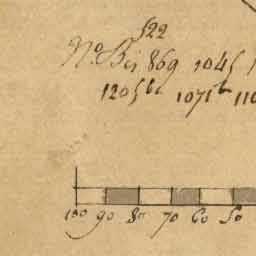 522
No. Bij 869 1045
1205 1071
100 90 80 70 60 50